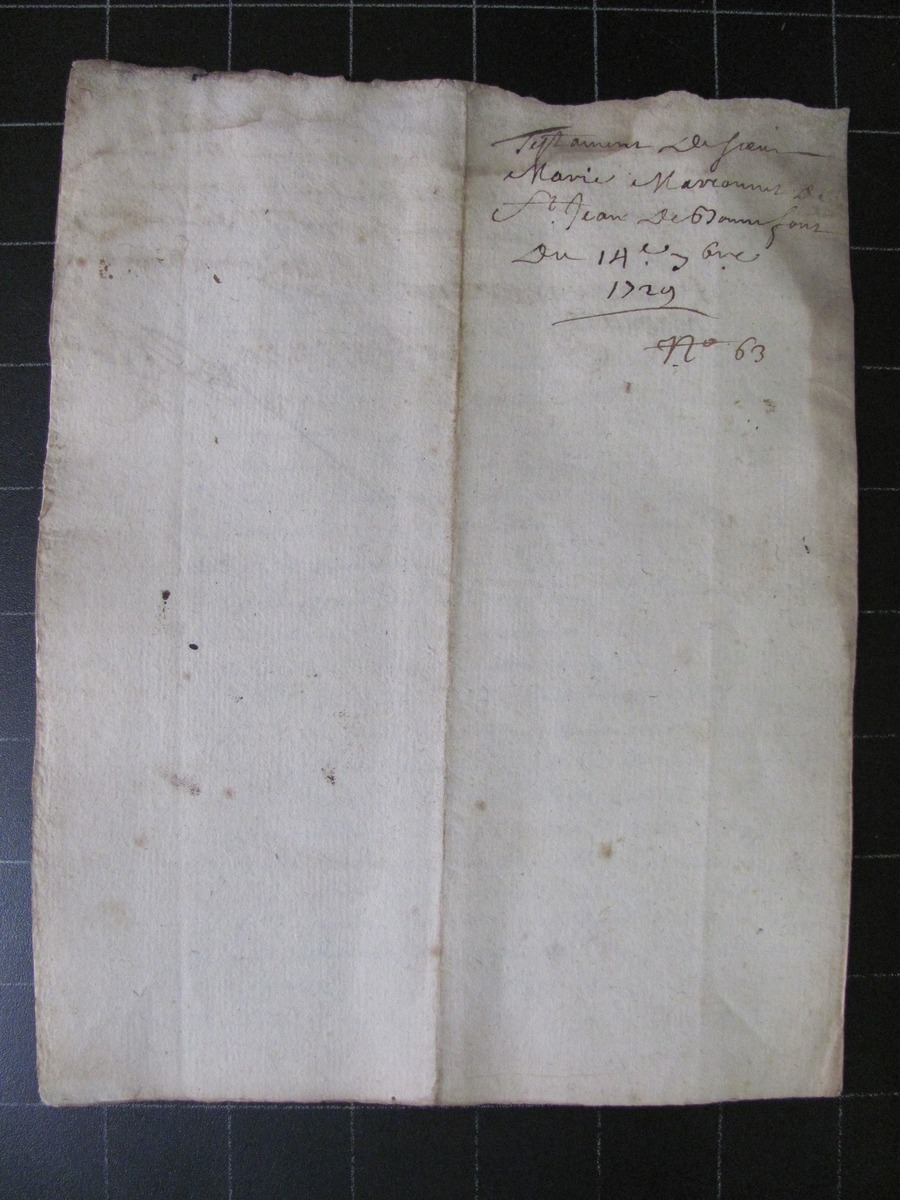 Testament de sœur
Marie Marconnet de
St. Jean de Bonnefont
Du 14e. 7bre
1729
No 63